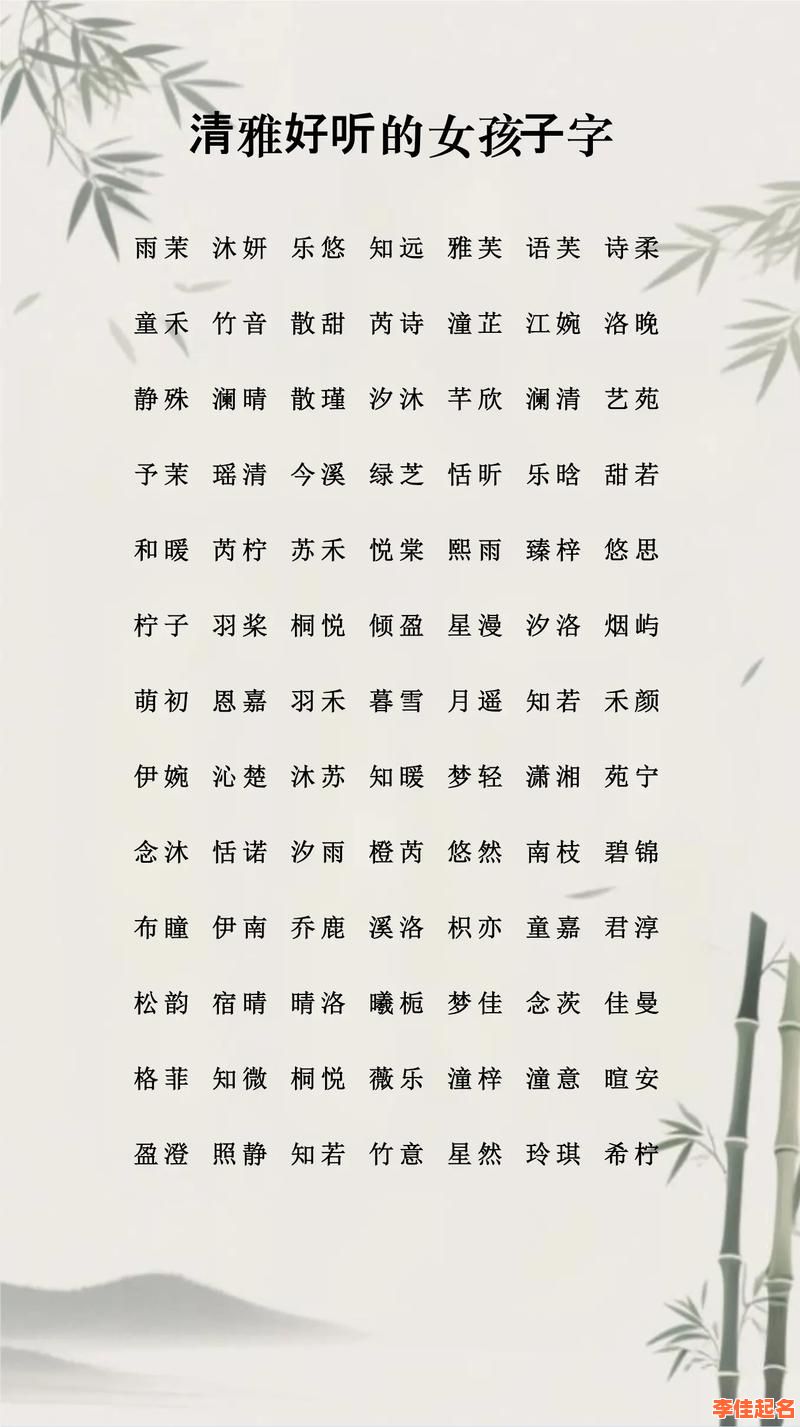 清雅好听的女孩子字
雨茉 沐妍 乐悠 知远 雅芙 语芙 诗柔
童禾 竹音 散甜 芮诗 潼芷 江婉 洛晚
静殊 澜晴 散瑾 汐沐 芊欣 澜清 艺苑
予茉 瑶清 今溪 绿芝 恬昕 乐晗 甜若
和暖 芮柠 苏禾 悦棠 熙雨 臻梓 悠思
柠子 羽桨 桐悦 倾盈 星漫 汐洛 烟屿
萌初 恩嘉 羽禾 暮雪 月遥 知若 禾颜
伊婉 沁楚 沐苏 知暖 梦轻 潇湘 苑宁
念沐 恬诺 汐雨 橙芮 悠然 南枝 碧锦
布瞳 伊南 乔鹿 溪洛 枳亦 童嘉 君淳
松韵 宿晴 晴洛 曦栀 梦佳 念茨 佳曼
格菲 知微 桐悦 薇乐 潼梓 潼意 暄安
盈澄 照静 知若 竹意 星然 玲琪 希柠
李佳起名